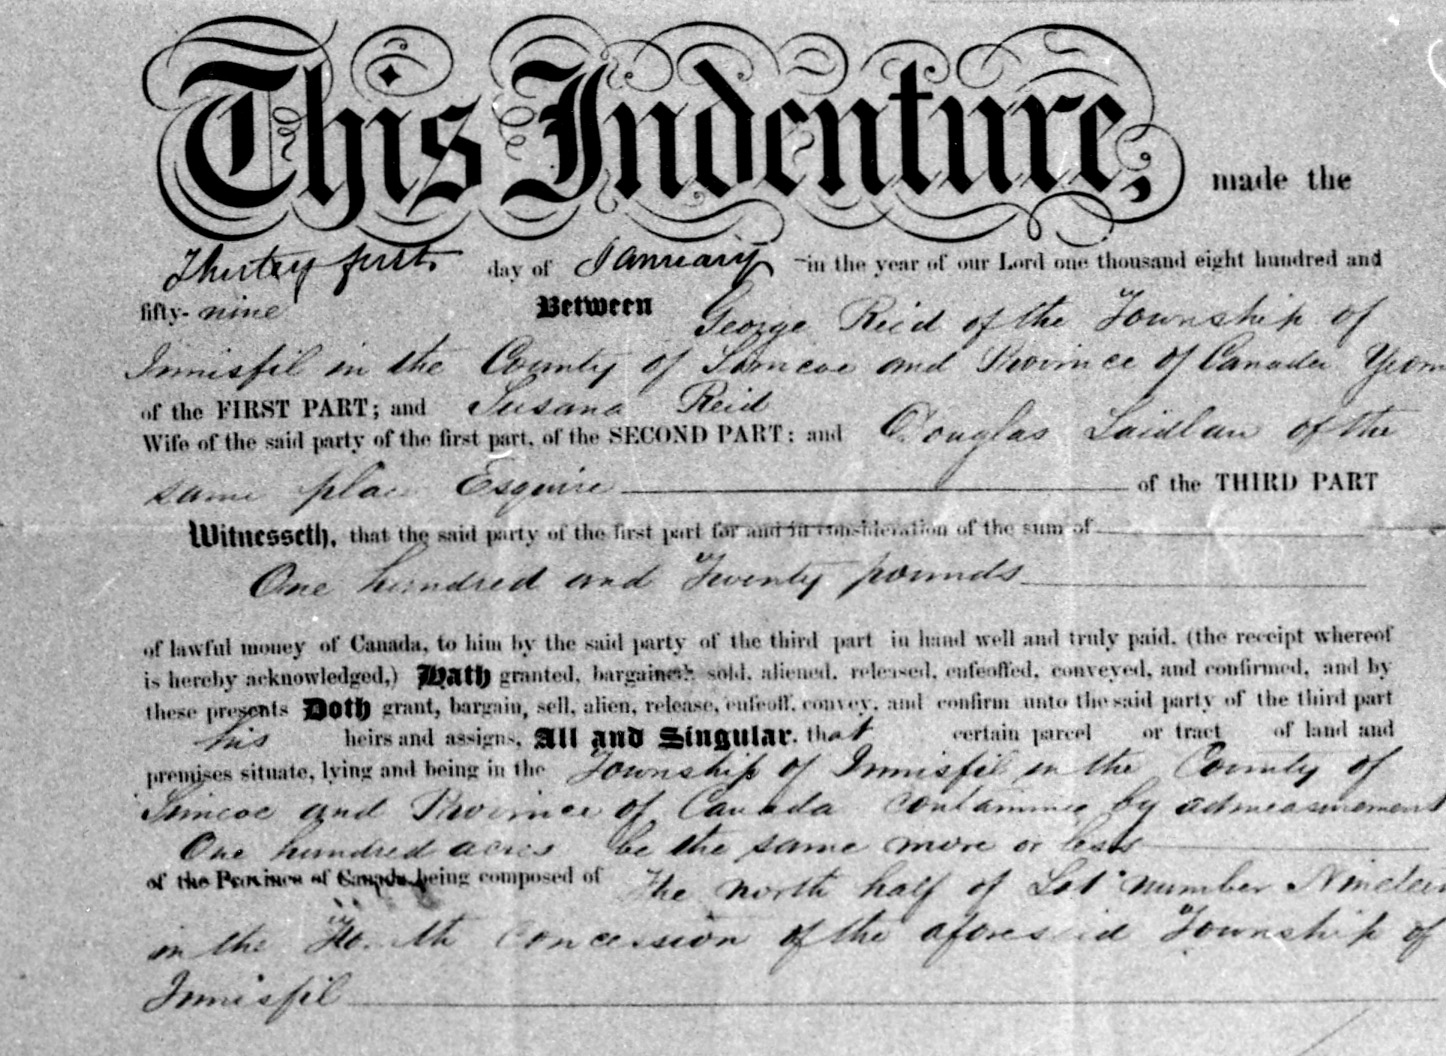 This Indenture, made the
Thirtey first day of January in the year of our Lord one thousand eight hundred and
fifty-nine Between George Reid of the Township of
Innisfil in the County of Simcoe and Province of Canada Yeom
of the FIRST PART; and Susana Reid
Wife of the said party of the first part, of the SECOND PART; and Douglas Laidlaw of the
same place Esquire of the THIRD PART
Witnesseth, that the said party of the first part for and in consideration of the sum of
One hundred and Twenty pounds
of lawful money of Canada, to him by the said party of the third part in hand well and truly paid, (the receipt whereof
is hereby acknowledged,) Hath granted, bargained, sold, aliened, released, enfeoffed, conveyed, and confirmed, and by
these presents Doth grant, bargain, sell, alien, release, enfeoff, convey, and confirm unto the said party of the third part
his heirs and assigns, All and Singular, that certain parcel or tract of land and
premises situate, lying and being in the Township of Innisfil in the County of
Simcoe and Province of Canada containing by admeasurement
One hundred acres be the same more or less
of the Province of Canada, being composed of The north half of Lot number Nineteen
in the concession of the aforesaid Township of
Innisfil